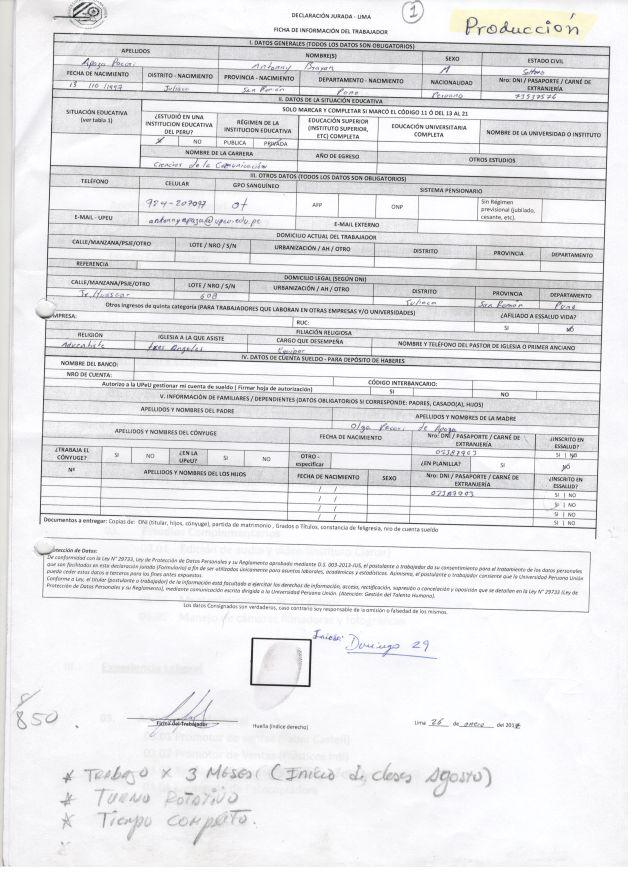 DECLARACIÓN JURADA - LIMA
1
Producción
FICHA DE INFORMACIÓN DEL TRABAJADOR
I. DATOS GENERALES (TODOS LOS DATOS SON OBLIGATORIOS)
APELLIDOS NOMBRE(S) SEXO ESTADO CIVIL
Apaza Pacori Antonny Brayan Soltero
FECHA DE NACIMIENTO DISTRITO - NACIMIENTO PROVINCIA - NACIMIENTO DEPARTAMENTO - NACIMIENTO NACIONALIDAD Nro: DNI / PASAPORTE / CARNÉ DE EXTRANJERÍA
Juliaca San Román Puno Peruano
II. DATOS DE LA SITUACIÓN EDUCATIVA
SITUACIÓN EDUCATIVA (ver tabla 1)
SOLO MARCAR Y COMPLETAR SI MARCÓ EL CÓDIGO 11 Ó DEL 13 AL 21
¿ESTUDIÓ EN UNA INSTITUCION EDUCATIVA DEL PERU? RÉGIMEN DE LA INSTITUCION EDUCATIVA EDUCACIÓN SUPERIOR (INSTITUTO SUPERIOR, ETC) COMPLETA EDUCACIÓN UNIVERSITARIA COMPLETA NOMBRE DE LA UNIVERSIDAD O INSTITUTO
NO PUBLICA PRIVADA
NOMBRE DE LA CARRERA AÑO DE EGRESO OTROS ESTUDIOS
Ciencias de la Comunicación
III. OTROS DATOS (TODOS LOS DATOS SON OBLIGATORIOS)
TELÉFONO CELULAR GPO SANGUÍNEO SISTEMA PENSIONARIO
O+ AFP ONP Sin Régimen previsional (jubilado, cesante, etc).
E-MAIL - UPEU antonnyapaza@upeu.edu.pe E-MAIL EXTERNO
DOMICILIO ACTUAL DEL TRABAJADOR
CALLE/MANZANA/PSJE/OTRO LOTE / NRO / S/N URBANIZACIÓN / AH / OTRO DISTRITO PROVINCIA DEPARTAMENTO
REFERENCIA
DOMICILIO LEGAL (SEGÚN DNI)
CALLE/MANZANA/PSJE/OTRO LOTE / NRO / S/N URBANIZACIÓN / AH / OTRO DISTRITO PROVINCIA DEPARTAMENTO
Jr. Huascar 608 Juliaca San Román Puno
Otros ingresos de quinta categoría (PARA TRABAJADORES QUE LABORAN EN OTRAS EMPRESAS Y/O UNIVERSIDADES) ¿AFILIADO A ESSALUD VIDA?
EMPRESA: RUC: SI NO
FILIACIÓN RELIGIOSA
RELIGIÓN IGLESIA A LA QUE ASISTE CARGO QUE DESEMPEÑA NOMBRE Y TELÉFONO DEL PASTOR DE IGLESIA O PRIMER ANCIANO
Adventista Los Angeles
IV. DATOS DE CUENTA SUELDO - PARA DEPÓSITO DE HABERES
NOMBRE DEL BANCO:
NRO DE CUENTA: CÓDIGO INTERBANCARIO:
Autorizo a la UPeU gestionar mi cuenta de sueldo ( Firmar hoja de autorización) SI NO
V. INFORMACIÓN DE FAMILIARES / DEPENDIENTES (DATOS OBLIGATORIOS SI CORRESPONDE: PADRES, CASADO(A), HIJOS)
APELLIDOS Y NOMBRES DEL PADRE APELLIDOS Y NOMBRES DE LA MADRE
Olga Pacori de Apaza
APELLIDOS Y NOMBRES DEL CÓNYUGE FECHA DE NACIMIENTO Nro: DNI / PASAPORTE / CARNÉ DE EXTRANJERÍA ¿INSCRITO EN ESSALUD?
SI | NO
¿TRABAJA EL CÓNYUGE? SI NO ¿EN LA UPeU? SI NO OTRO - especificar ¿EN PLANILLA? SI NO
Nº APELLIDOS Y NOMBRES DE LOS HIJOS FECHA DE NACIMIENTO SEXO Nro: DNI / PASAPORTE / CARNÉ DE EXTRANJERÍA ¿INSCRITO EN ESSALUD?
/ / SI | NO
/ / SI | NO
/ / SI | NO
Documentos a entregar: Copias de: DNI (titular, hijos, cónyuge), partida de matrimonio , Grados o Títulos, constancia de feligresia, nro de cuenta sueldo
Protección de Datos:
De conformidad con la Ley N° 29733, Ley de Protección de Datos Personales y su Reglamento aprobado mediante D.S. 003-2013-JUS, el postulante o trabajador da su consentimiento para el tratamiento de los datos personales
que son facilitados en esta declaración jurada (Formulario) a fin de ser utilizados únicamente para asuntos laborales, académicos y estadísticos. Asimismo, el postulante o trabajador consiente que la Universidad Peruana Unión
pueda ceder estos datos a terceros para los fines antes expuestos.
Conforme a Ley, el titular (postulante o trabajador) de la información está facultado a ejercitar los derechos de información, acceso, rectificación, supresión o cancelación y oposición que se detallan en la Ley N° 29733 (Ley de
Protección de Datos Personales y su Reglamento), mediante comunicación escrita dirigida a la Universidad Peruana Unión. (Atención: Gestión del Talento Humano).
Los datos Consignados son verdaderos, caso contrario soy responsable de la omisión o falsedad de los mismos.
Inicia: Domingo 29
S/ 850.
Firma del Trabajador Huella (índice derecho) Lima 26 de enero del
* Trabajo x 3 Meses (Inicio de clases Agosto)
* Turno Rotativo
* Tiempo Completo.